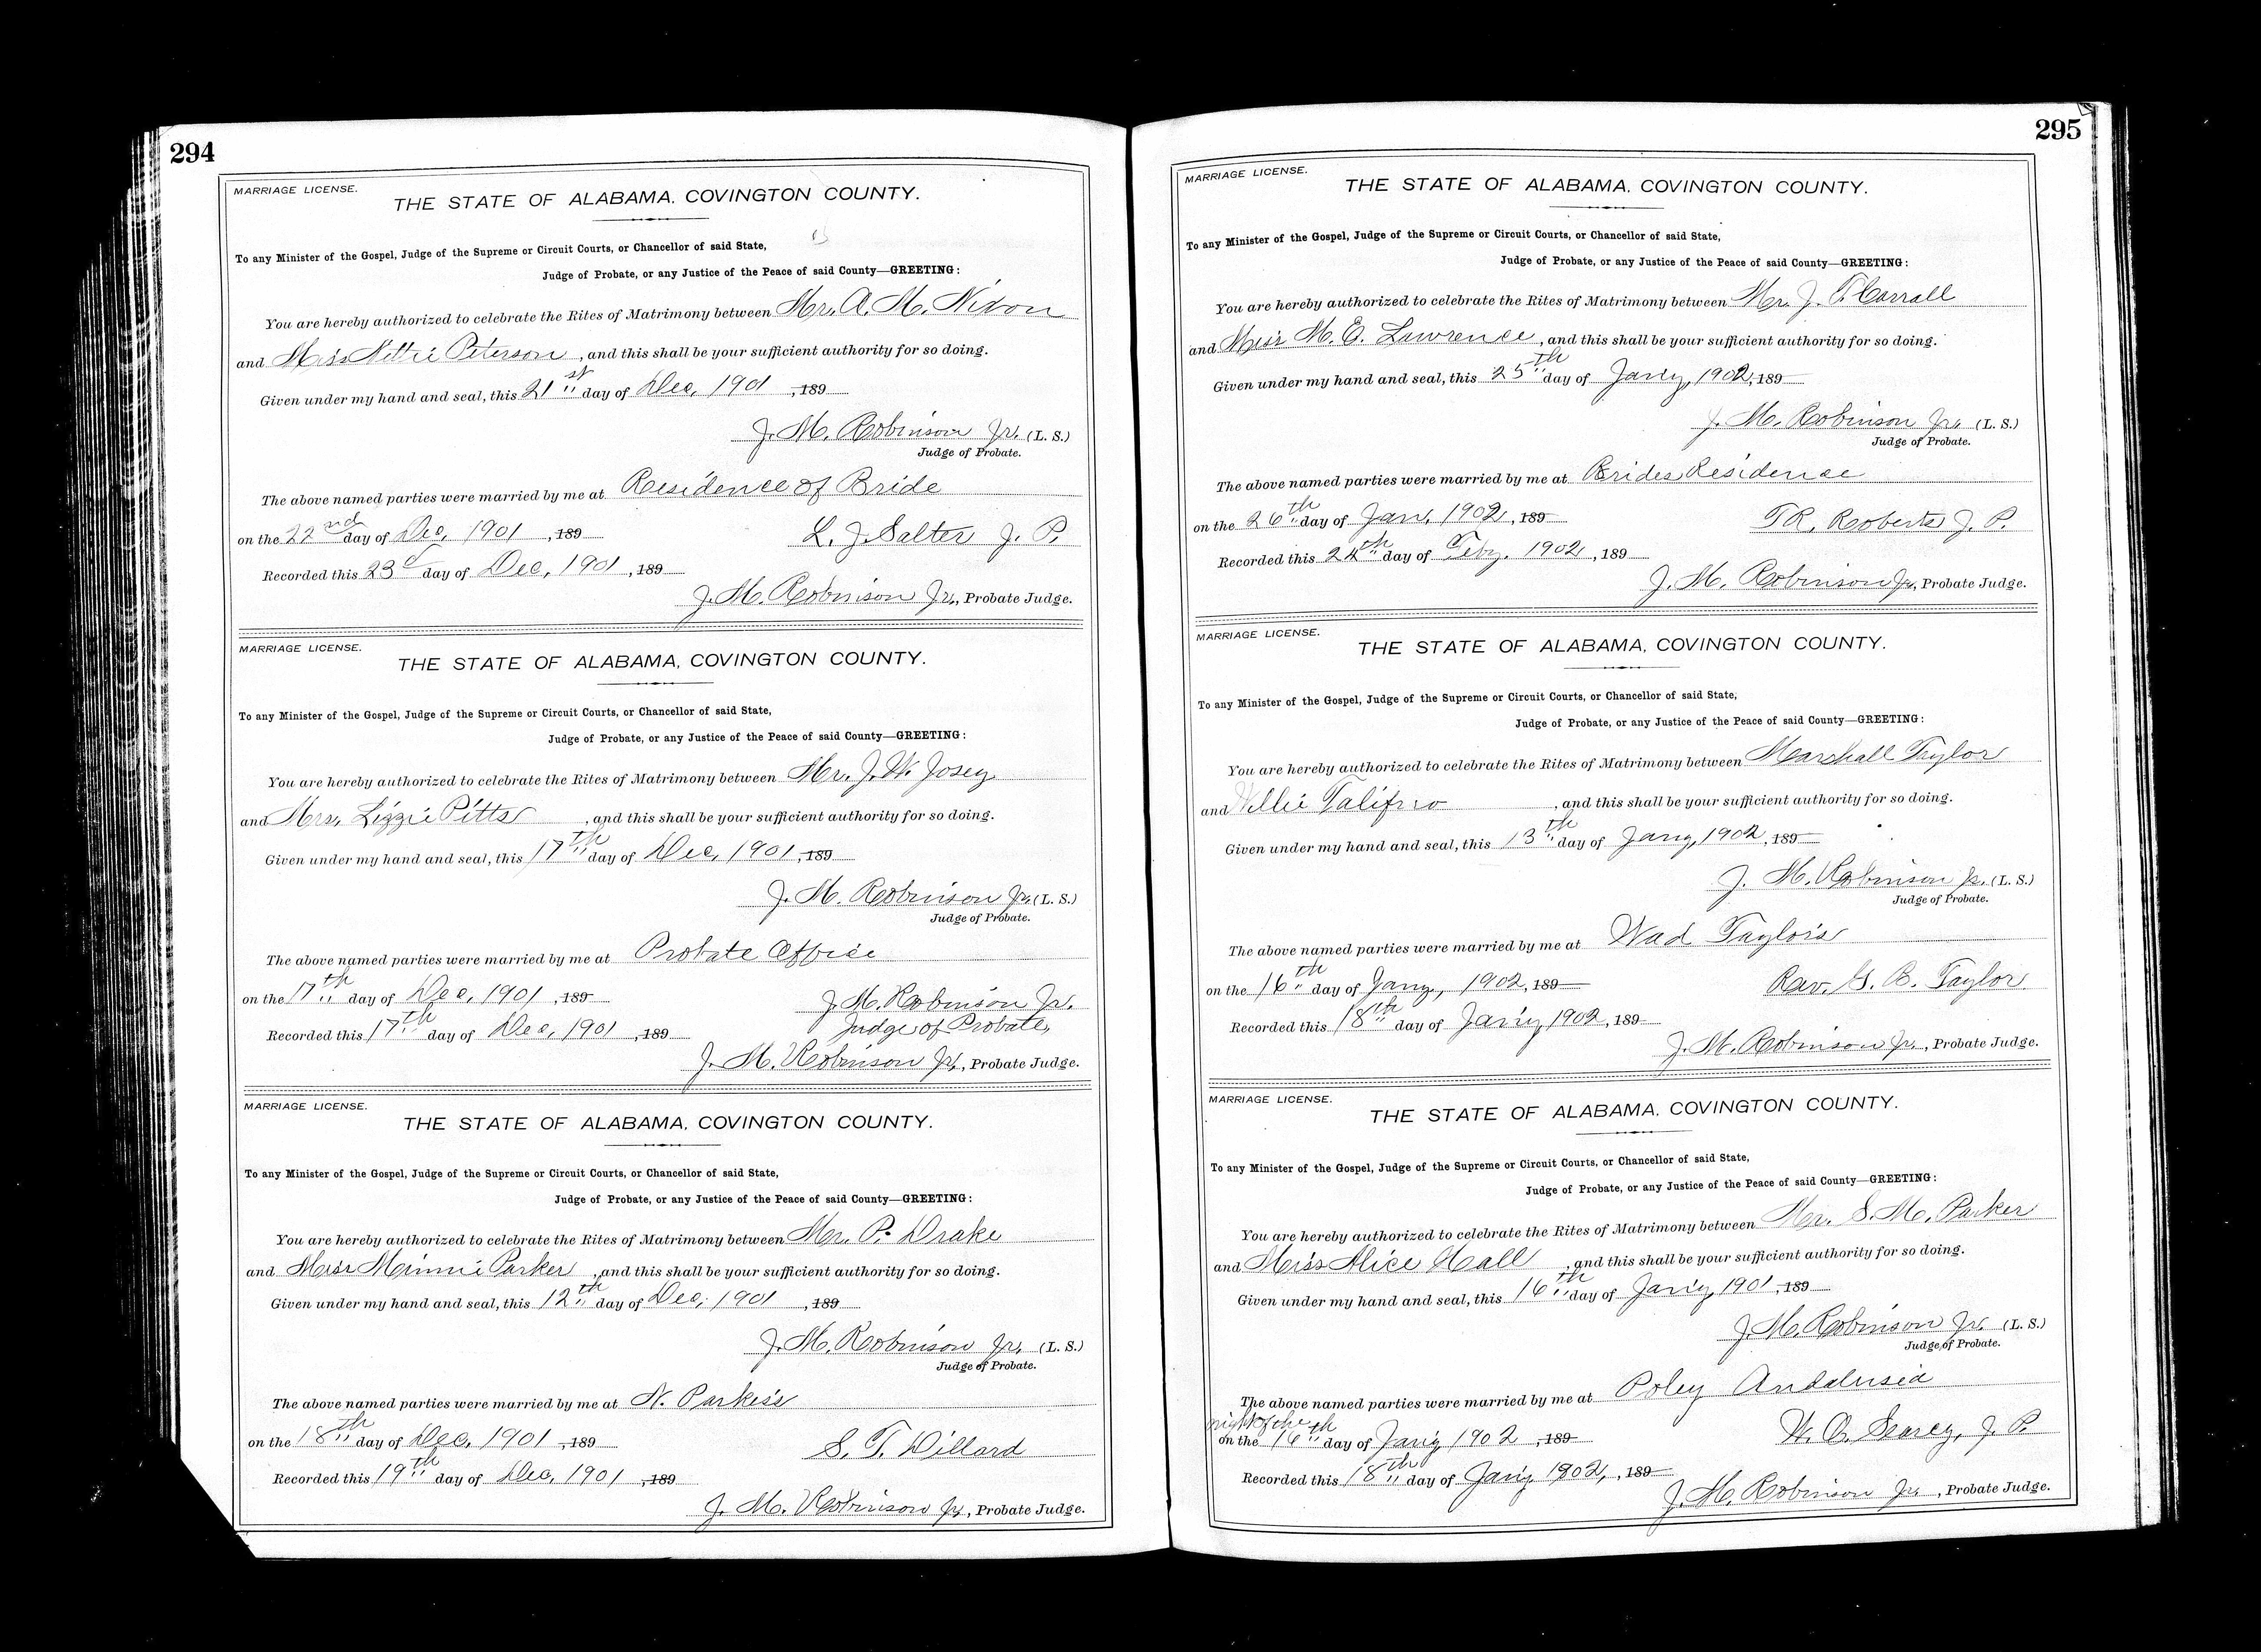 294
MARRIAGE LICENSE.
THE STATE OF ALABAMA, COVINGTON COUNTY.
To any Minister of the Gospel, Judge of the Supreme or Circuit Courts, or Chancellor of said State,
Judge of Probate, or any Justice of the Peace of said County—GREETING:
You are hereby authorized to celebrate the Rites of Matrimony between Mr. A. M. Nixon
and Miss Nettie Peterson, and this shall be your sufficient authority for so doing.
Given under my hand and seal, this 21st day of Dec, 1901, 189
J. M. Robinson Jr. (L. S.)
Judge of Probate.
The above named parties were married by me at Residence of Bride
on the 22nd day of Dec, 1901, 189 L. J. Salter J. P.
Recorded this 23d day of Dec, 1901, 189
J. M. Robinson Jr., Probate Judge.
MARRIAGE LICENSE.
THE STATE OF ALABAMA, COVINGTON COUNTY.
To any Minister of the Gospel, Judge of the Supreme or Circuit Courts, or Chancellor of said State,
Judge of Probate, or any Justice of the Peace of said County—GREETING:
You are hereby authorized to celebrate the Rites of Matrimony between Mr. J. W. Josey
and Mrs. Lizzie Pitts, and this shall be your sufficient authority for so doing.
Given under my hand and seal, this 17th day of Dec, 1901, 189
J. M. Robinson Jr. (L. S.)
Judge of Probate.
The above named parties were married by me at Probate Office
on the 17th day of Dec, 1901, 189 J. M. Robinson Jr.
Judge of Probate,
Recorded this 17th day of Dec, 1901, 189
J. M. Robinson Jr., Probate Judge.
MARRIAGE LICENSE.
THE STATE OF ALABAMA, COVINGTON COUNTY.
To any Minister of the Gospel, Judge of the Supreme or Circuit Courts, or Chancellor of said State,
Judge of Probate, or any Justice of the Peace of said County—GREETING:
You are hereby authorized to celebrate the Rites of Matrimony between Mr. P. Drake
and Miss Minnie Parker, and this shall be your sufficient authority for so doing.
Given under my hand and seal, this 12th day of Dec, 1901, 189
J. M. Robinson Jr. (L. S.)
Judge of Probate.
The above named parties were married by me at N. Parker's
on the 18th day of Dec, 1901, 189 S. T. Dillard
Recorded this 19th day of Dec, 1901, 189
J. M. Robinson Jr., Probate Judge.
295
MARRIAGE LICENSE.
THE STATE OF ALABAMA, COVINGTON COUNTY.
To any Minister of the Gospel, Judge of the Supreme or Circuit Courts, or Chancellor of said State,
Judge of Probate, or any Justice of the Peace of said County—GREETING:
You are hereby authorized to celebrate the Rites of Matrimony between Mr. J. T. Carrall
and Miss M. E. Lawrence, and this shall be your sufficient authority for so doing.
Given under my hand and seal, this 25th day of Jan'y, 1902, 189
J. M. Robinson Jr. (L. S.)
Judge of Probate.
The above named parties were married by me at Brides Residence
on the 26th day of Jan, 1902, 189 T R. Roberts J. P.
Recorded this 24th day of Feby. 1902, 189
J. M. Robinson Jr., Probate Judge.
MARRIAGE LICENSE.
THE STATE OF ALABAMA, COVINGTON COUNTY.
To any Minister of the Gospel, Judge of the Supreme or Circuit Courts, or Chancellor of said State,
Judge of Probate, or any Justice of the Peace of said County—GREETING:
You are hereby authorized to celebrate the Rites of Matrimony between Marshall Taylor
and Talifiro, and this shall be your sufficient authority for so doing.
Given under my hand and seal, this 13th day of Jany, 1902, 189
J. M. Robinson Jr. (L. S.)
Judge of Probate.
The above named parties were married by me at Wad Taylor's
on the 16th day of Jany, 1902, 189 Rev. G. B. Taylor
Recorded this 18th day of Jan'y, 1902, 189
J. M. Robinson Jr., Probate Judge.
MARRIAGE LICENSE.
THE STATE OF ALABAMA, COVINGTON COUNTY.
To any Minister of the Gospel, Judge of the Supreme or Circuit Courts, or Chancellor of said State,
Judge of Probate, or any Justice of the Peace of said County—GREETING:
You are hereby authorized to celebrate the Rites of Matrimony between Mr. S. M. Parker
and Miss Alice Hall, and this shall be your sufficient authority for so doing.
Given under my hand and seal, this 16th day of Jan'y, 1901, 189
J. M. Robinson Jr. (L. S.)
Judge of Probate.
The above named parties were married by me at Poley Andalusia
night of the
on the 16th day of Jan'y 1902, 189 W. O. Searcy, J. P.
Recorded this 18th day of Jan'y 1902, 189
J. M. Robinson Jr., Probate Judge.